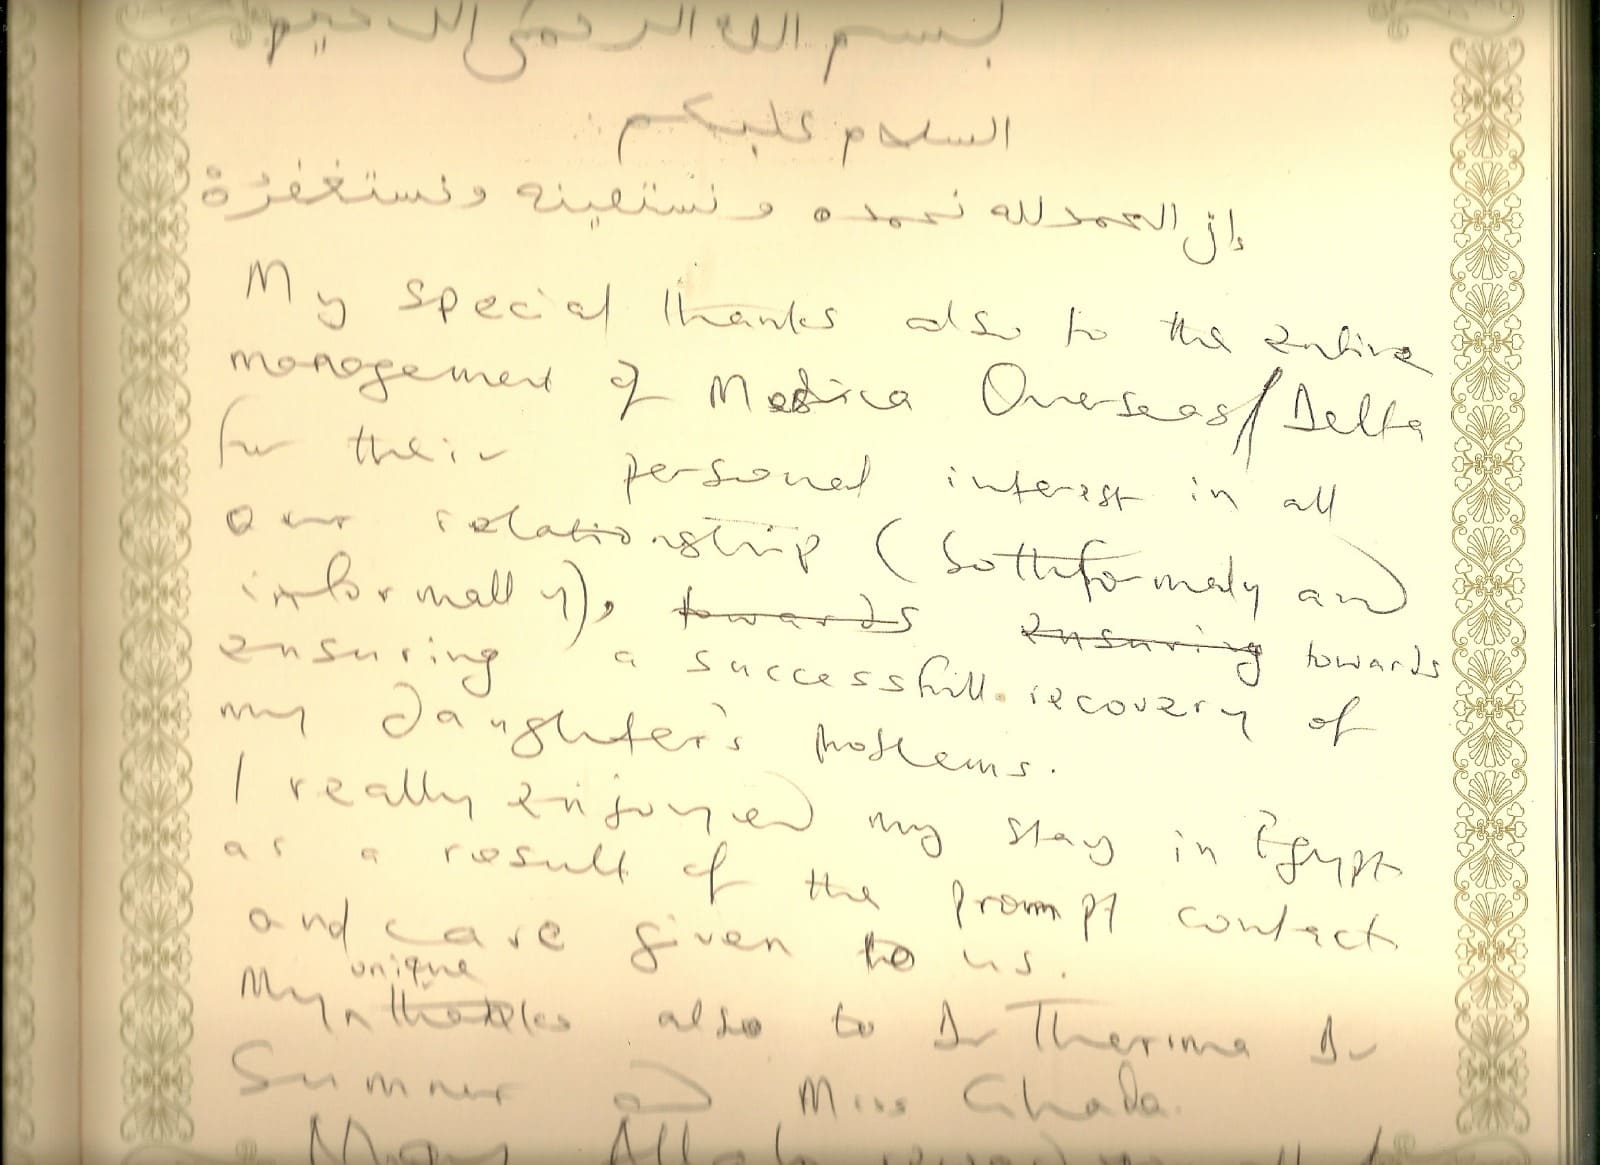 بسم الله الرحمن الرحيم
السلام عليكم
إن الحمد لله نحمده و نستعينه و نستغفره
My special thanks also to the entire
management of Medica Overseas/Delta
for their personal interest in all
our relationship (both formaly and
informally), towards ensuring towards
ensuring a successful recovery of
my daughter's problems.
I really enjoyed my stay in Egypt
as a result of the prompt contact
and care given to us.
My unique thanks also to Dr Therima Dr
Sumner and Miss Ghada.
May Allah all